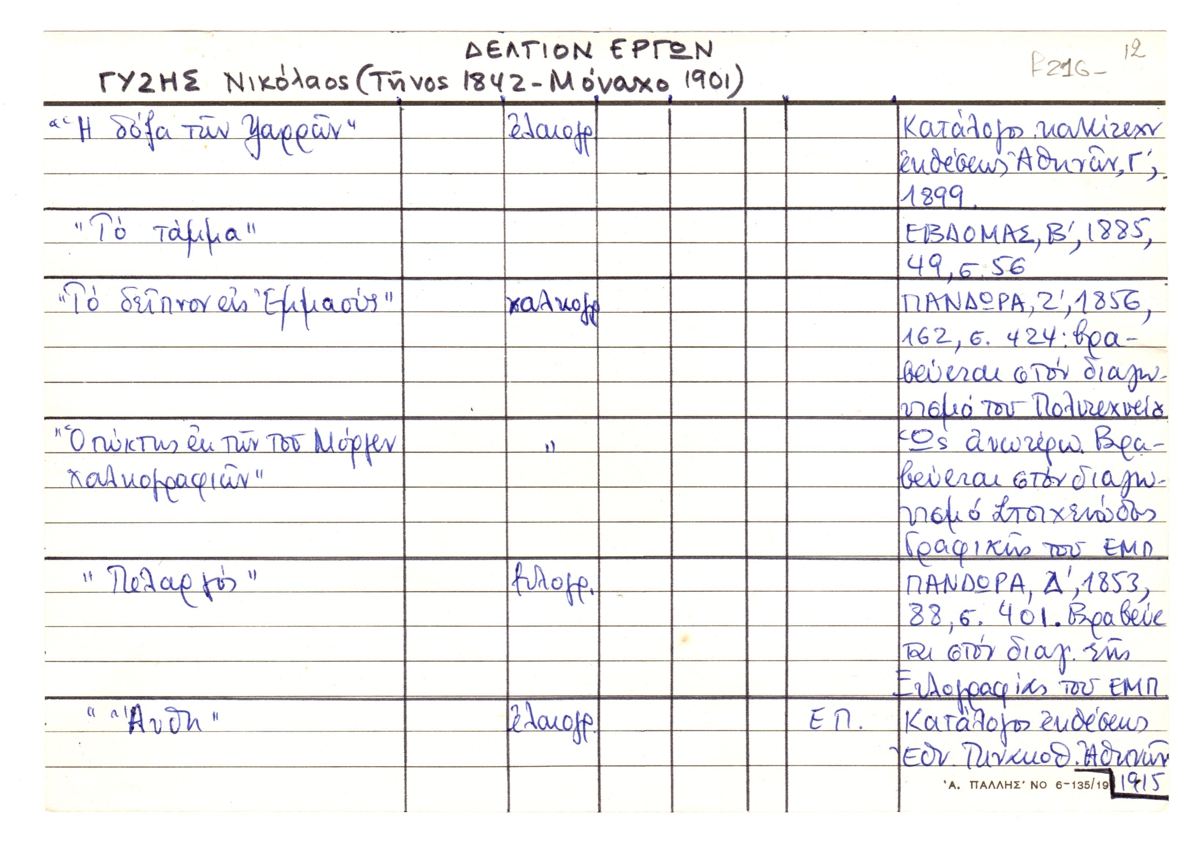 ΔΕΛΤΙΟΝ ΕΡΓΩΝ
12
ΓΥΖΗΣ Νικόλαος (Τῆνος 1842-Μόναχο 1901)
"Ἡ δόξα τῶν Ψαρρῶν" ἐλαιογρ. Κατάλογος καλλιτεχν
ἐκθέσεως Ἀθηνῶν, Γ',
1899.
"Τό τάμμα" ΕΒΔΟΜΑΣ, Β', 1885,
49, σ. 56
"Τό δεῖπνον εἰς Ἐμμαούς" χαλκογρ ΠΑΝΔΩΡΑ, Ζ', 1856,
162, σ. 424: βρα-
βεύεται στόν διαγω-
νισμό του Πολυτεχνείου
"Ὁ πύκτης ἐκ τῶν τοῦ Μόργεν " Ὡς ἀνωτέρω. Βρα-
χαλκογραφιῶν" βεύεται στόν διαγω-
νισμό Στοιχειώδους
Γραφικῆς του ΕΜΠ
"Πελαργός" ξυλογρ. ΠΑΝΔΩΡΑ, Δ', 1853,
88, σ. 401. Βραβεύε
ται στόν διαγ. τῆς
Ξυλογραφίας του ΕΜΠ
"Ἄνθη" ἐλαιογρ. ΕΠ. Κατάλογος ἐκθέσεως
Ἐθν. Πινακοθ. Ἀθηνῶν
1915
'Α. ΠΑΛΛΗΣ' ΝΟ 6-135/19